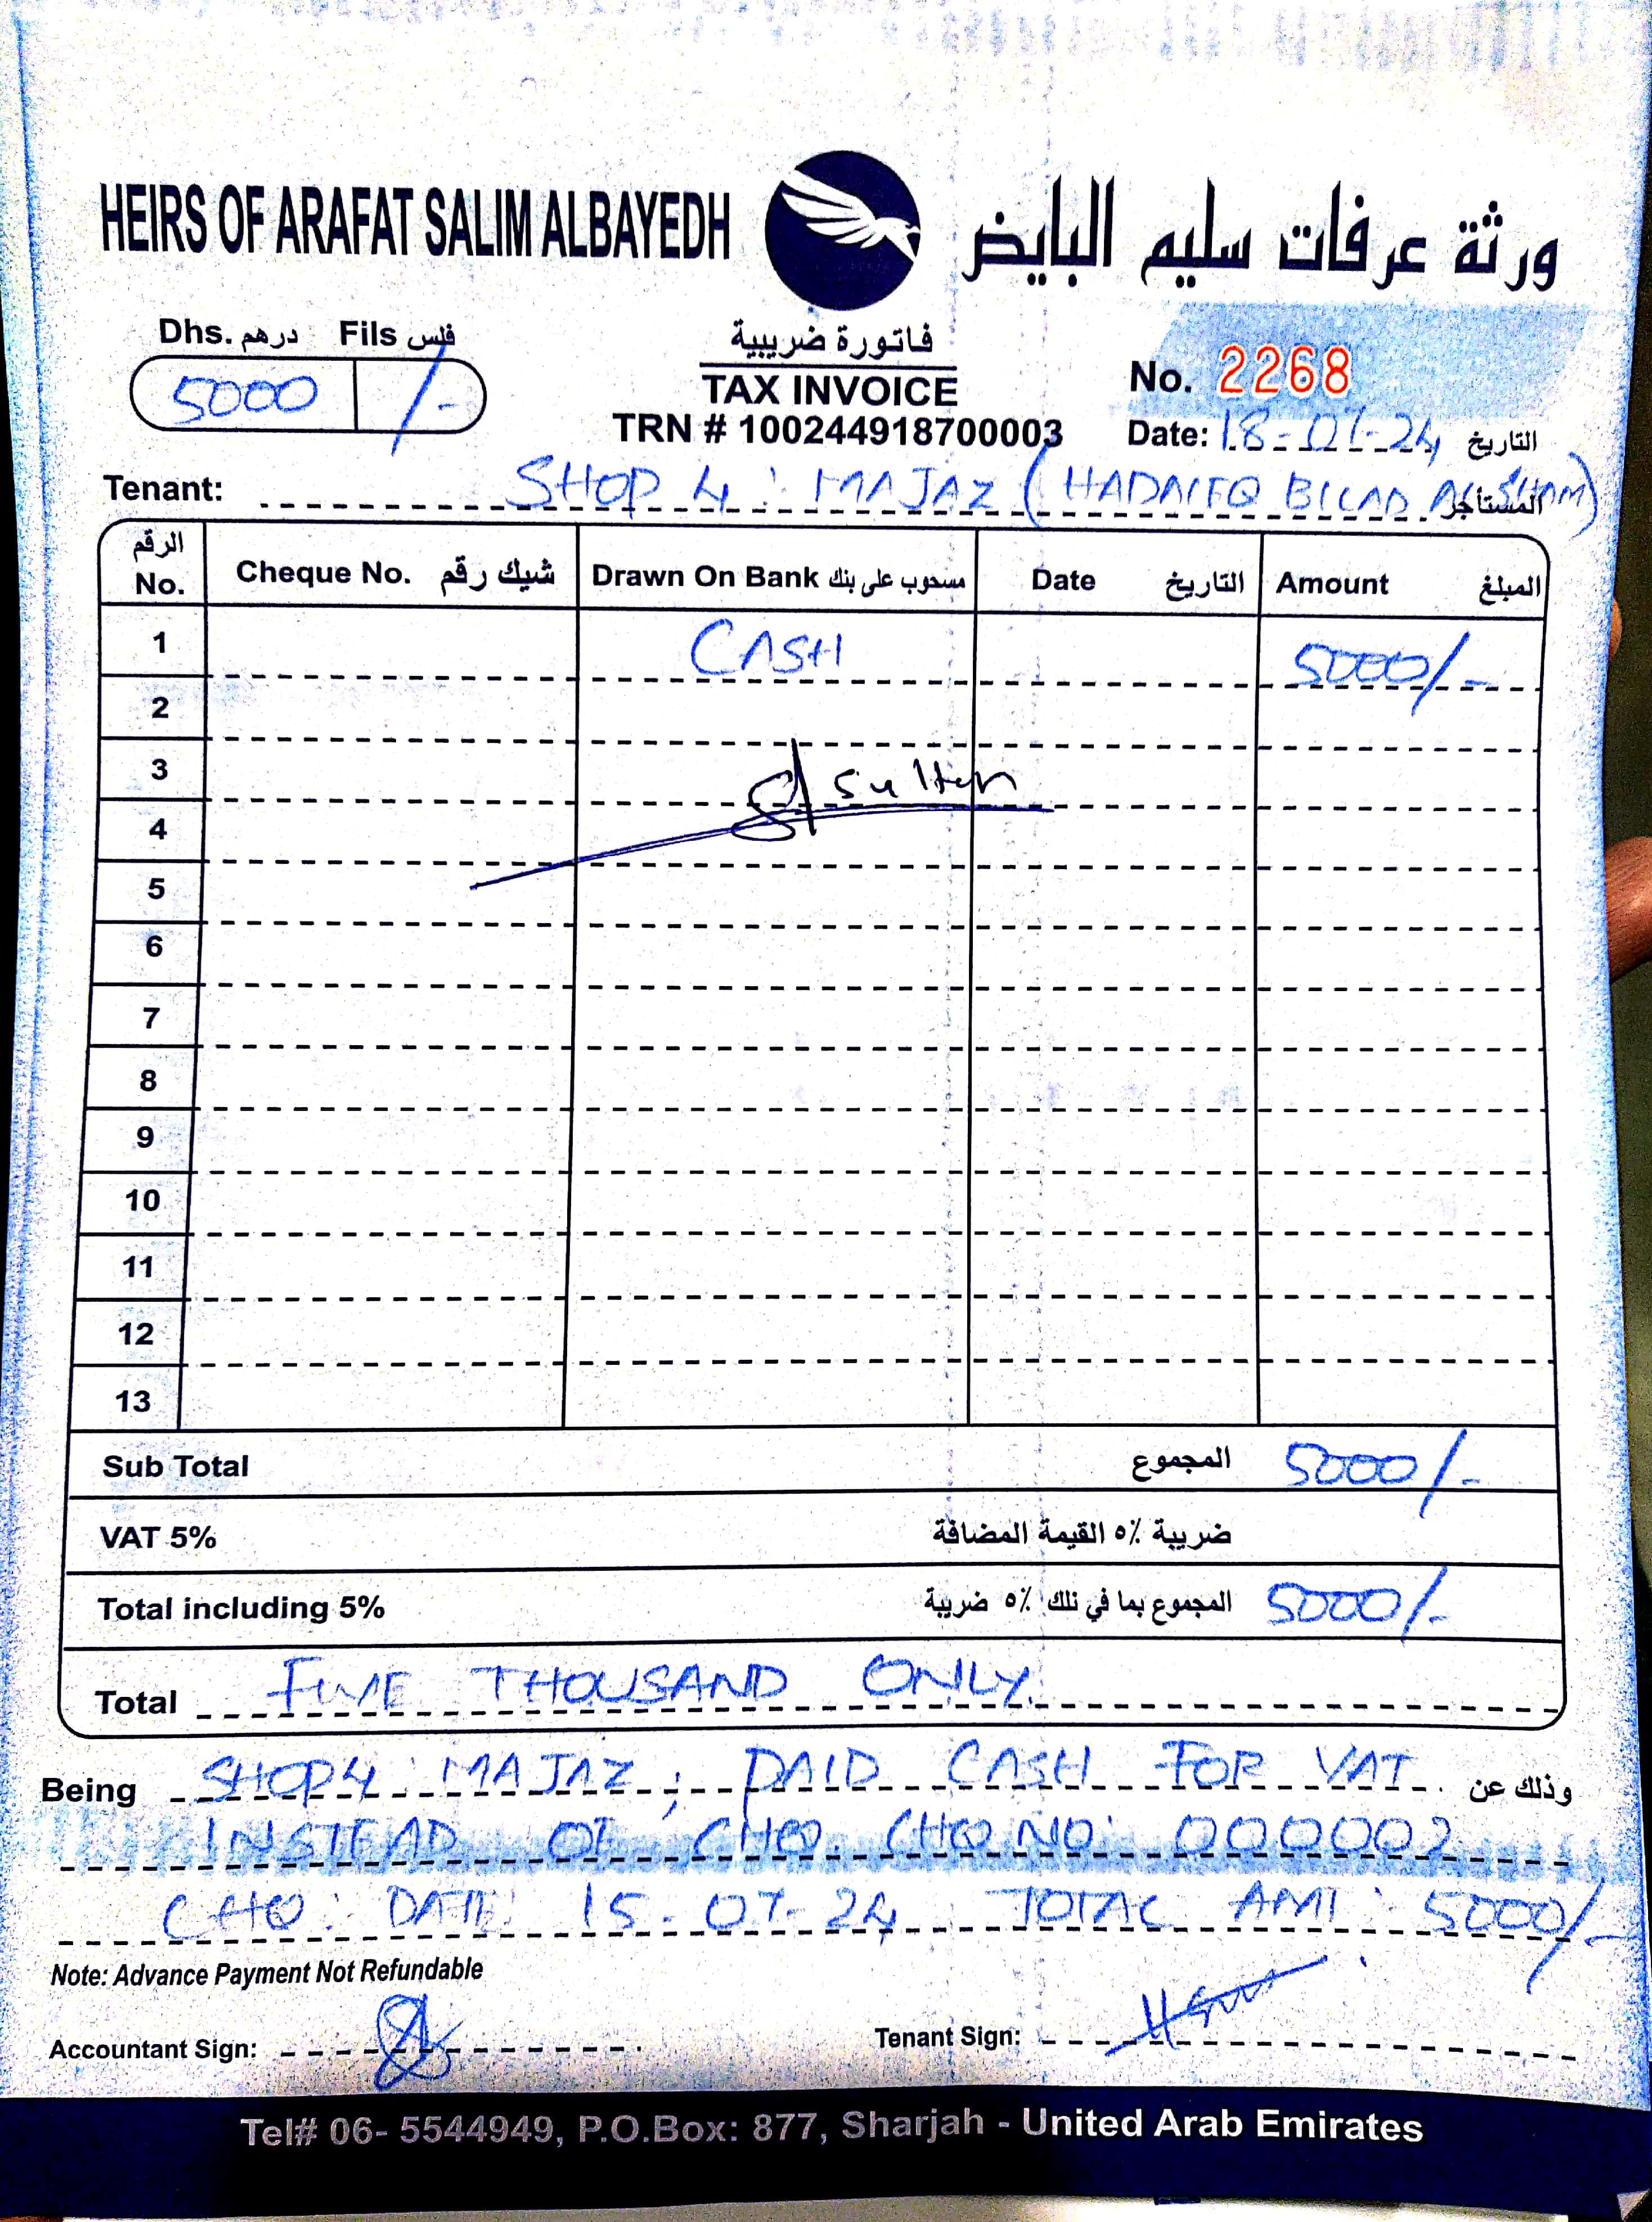 HEIRS OF ARAFAT SALIM ALBAYEDH ورثة عرفات سليم البايض
Dhs. درهم Fils فلس
5000 /-
فاتورة ضريبية
TAX INVOICE
TRN # 100244918700003
No. 2268
Date: 18-07-24 التاريخ
Tenant: SHOP 4 : MAJAZ (HADAIEQ BILAD AL SHAM) المستاجر
الرقم No. Cheque No. شيك رقم Drawn On Bank مسحوب على بنك Date التاريخ Amount المبلغ
1 CASH 5000/-
2
3 Sultan
4
5
6
7
8
9
10
11
12
13
Sub Total المجموع 5000/-
VAT 5% ضريبة ٥٪ القيمة المضافة
Total including 5% المجموع بما في ذلك ٥٪ ضريبة 5000/-
Total FIVE THOUSAND ONLY
Being SHOP4 : MAJAZ ; PAID CASH FOR VAT وذلك عن
INSTEAD OF CHQ. CHQ NO: 000002
CHQ : DATE: 15-07-24 TOTAL AMT : 5000/-
Note: Advance Payment Not Refundable
Accountant Sign: Tenant Sign:
Tel# 06- 5544949, P.O.Box: 877, Sharjah - United Arab Emirates